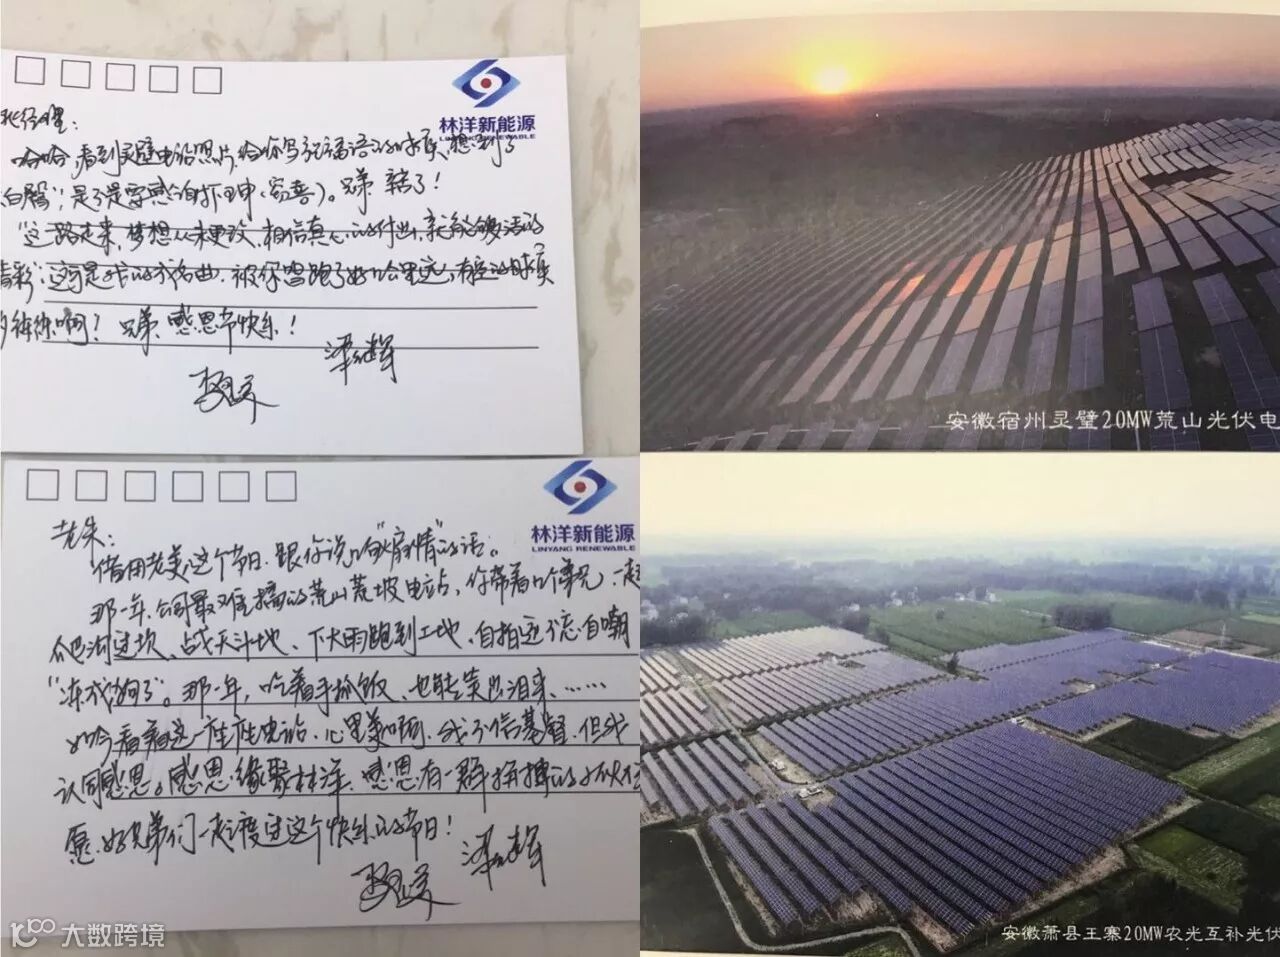 林洋新能源
LINYANG RENEWABLE
经理:
哈哈,看到灵璧电站照片,给你写祝福语的时候,想到了
白鹭",是不是富感自拍王中(窃喜)。兄弟 辛苦了!
"这一路走来,梦想从未更改,相信真心的付出,就能够活的
精彩".这可是我的成名曲.被你唱跑了好几公里远,有空的时候
多练练啊!兄弟 感恩节快乐!
安徽宿州灵璧20MW荒山光伏电
林洋新能源
LINYANG RENEWABLE
老朱:
借用老美这个节日.跟你说几句"煽情"的话。
那一年.公司最难搞的荒山荒坡电站,你带着几个弟兄,一起
爬沟过坎、战天斗地、下大雨跑到工地、自拍还不忘自嘲
"冻成狗了"。那一年,吃着手抓饭、也能笑出泪来、……
如今看着这一座座电站.心里美啊.我不信基督.但我
认同感恩。感恩缘聚林洋.感恩有一群拼搏的伙伴
愿.好兄弟们一起渡过这个快乐的节日!
安徽萧县王寨20MW农光互补光伏
大数跨境